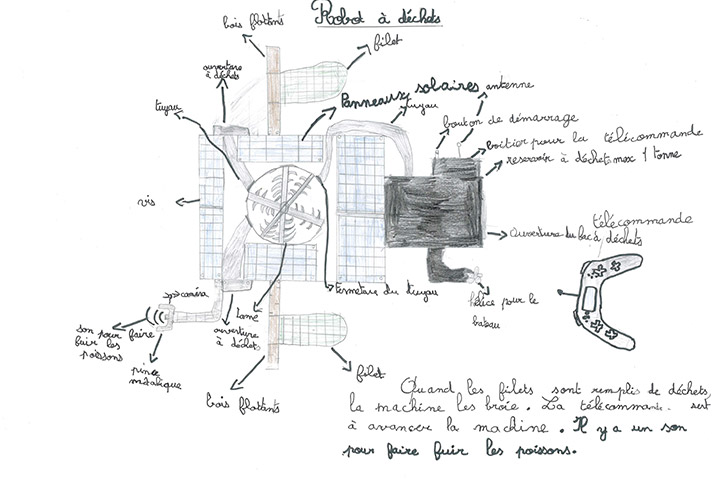 Robot à déchets
bois flottants
filet
ouverture
à déchets
Panneaux solaires
antenne
tuyau
tuyau
bouton de démarrage
boîtier pour la télécommande
reservoir à déchets max 1 tonne
vis
télécommande
ouverture du bac à déchets
caméra
fermeture du tuyau
lame
ouverture
à déchets
hélice pour le
bateau
son pour faire
fuir les
poissons
pince
métalique
filet
bois flottants
Quand les filets sont remplis de déchets,
la machine les broie. La télécommande sert
à avancer la machine. Il y a un son
pour faire fuir les poissons.